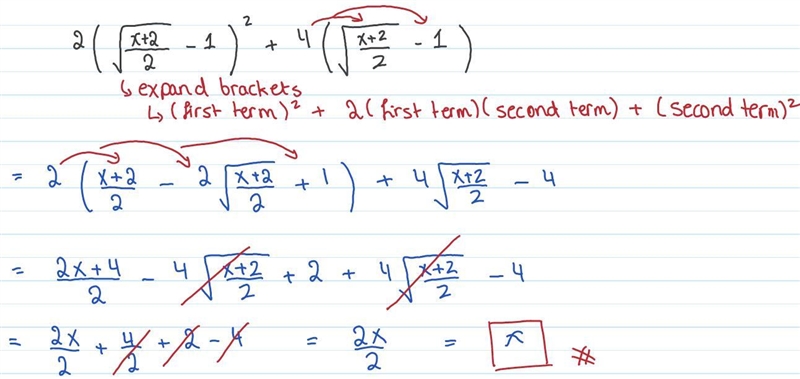 2(√((x+2)/2) - 1)² + 4(√((x+2)/2) - 1)
↳ expand brackets
↳ (first term)² + 2(first term)(second term) + (second term)²
= 2((x+2)/2 - 2√((x+2)/2) + 1) + 4√((x+2)/2) - 4
= (2x+4)/2 - 4√((x+2)/2) + 2 + 4√((x+2)/2) - 4
= 2x/2 + 4/2 + 2 - 4 = 2x/2 = x #